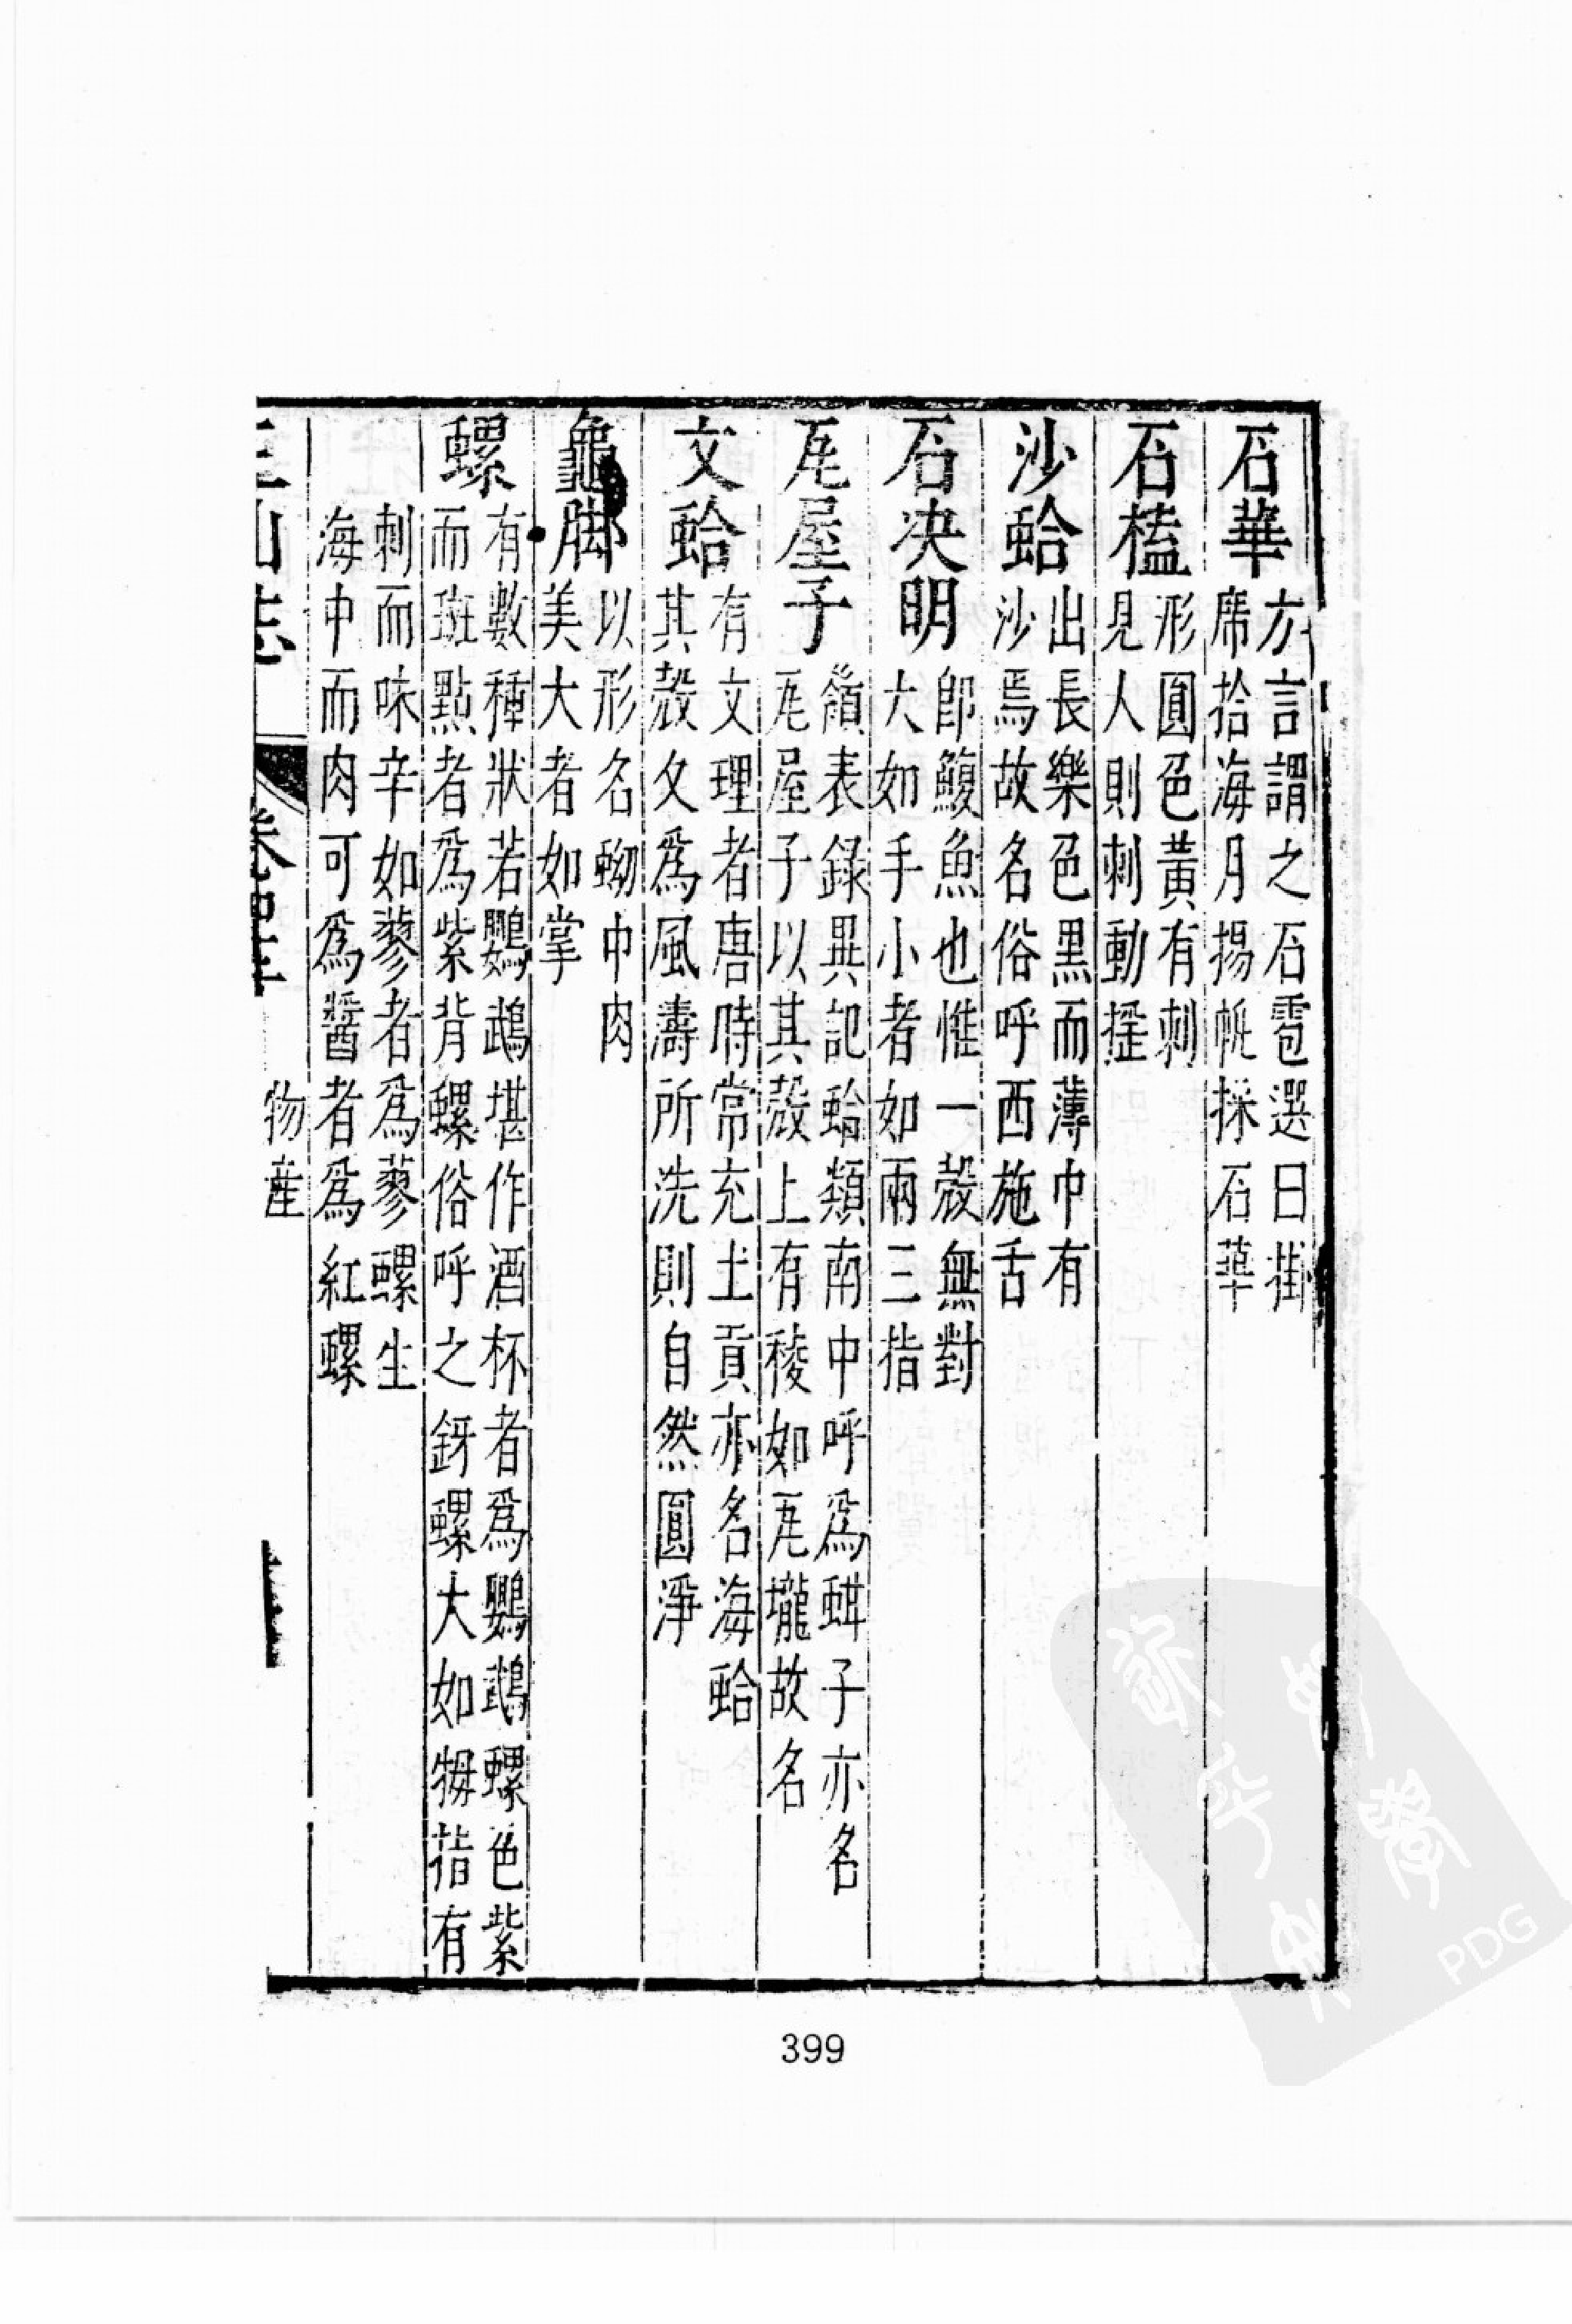 石華方言謂之石雹選曰掛
席拾海月揚帆採石華
石榼形圓色黃有刺
見人則刺動揺
沙蛤出長樂色黑而薄中有
沙焉故名俗呼西施舌
石决明即鰒魚也惟一殻無對
大如手小者如兩三指
瓦屋子嶺表錄異記蛤類南中呼爲蚶子亦名
瓦屋子以其殻上有稜如瓦壠故名
文蛤有文理者唐時常充土貢亦名海蛤
其殻久爲風濤所洗則自然圓淨
龜脚以形名蚴中肉
美大者如掌
螺有數種狀若鸚鵡堪作酒杯者爲鸚鵡螺色紫
而斑點者爲紫背螺俗呼之釾螺大如拇指有
刺而味辛如蓼者爲蓼螺生
海中而肉可爲醬者爲紅螺
三山志 卷四十 物産
399
PDG